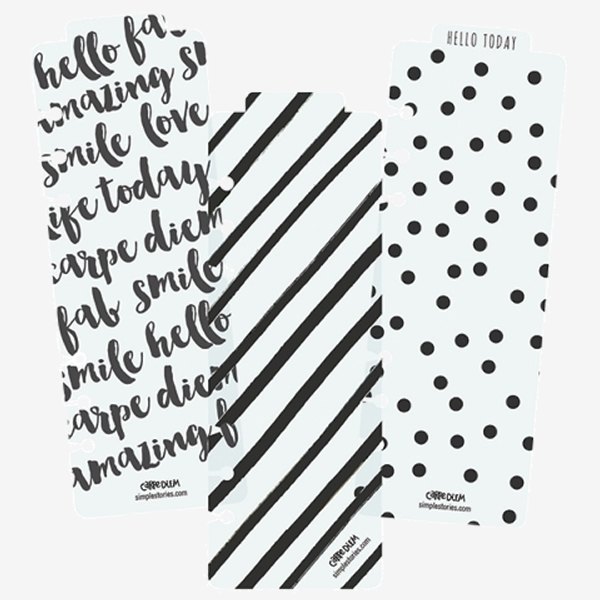 hello fa
amazing s
smile love
life today
carpe diem
fab smile
smile hello
carpe diem
amazing f
CARPE DIEM
simplestories.com
CARPE DIEM
simplestories.com
HELLO TODAY
CARPE DIEM
simplestories.com